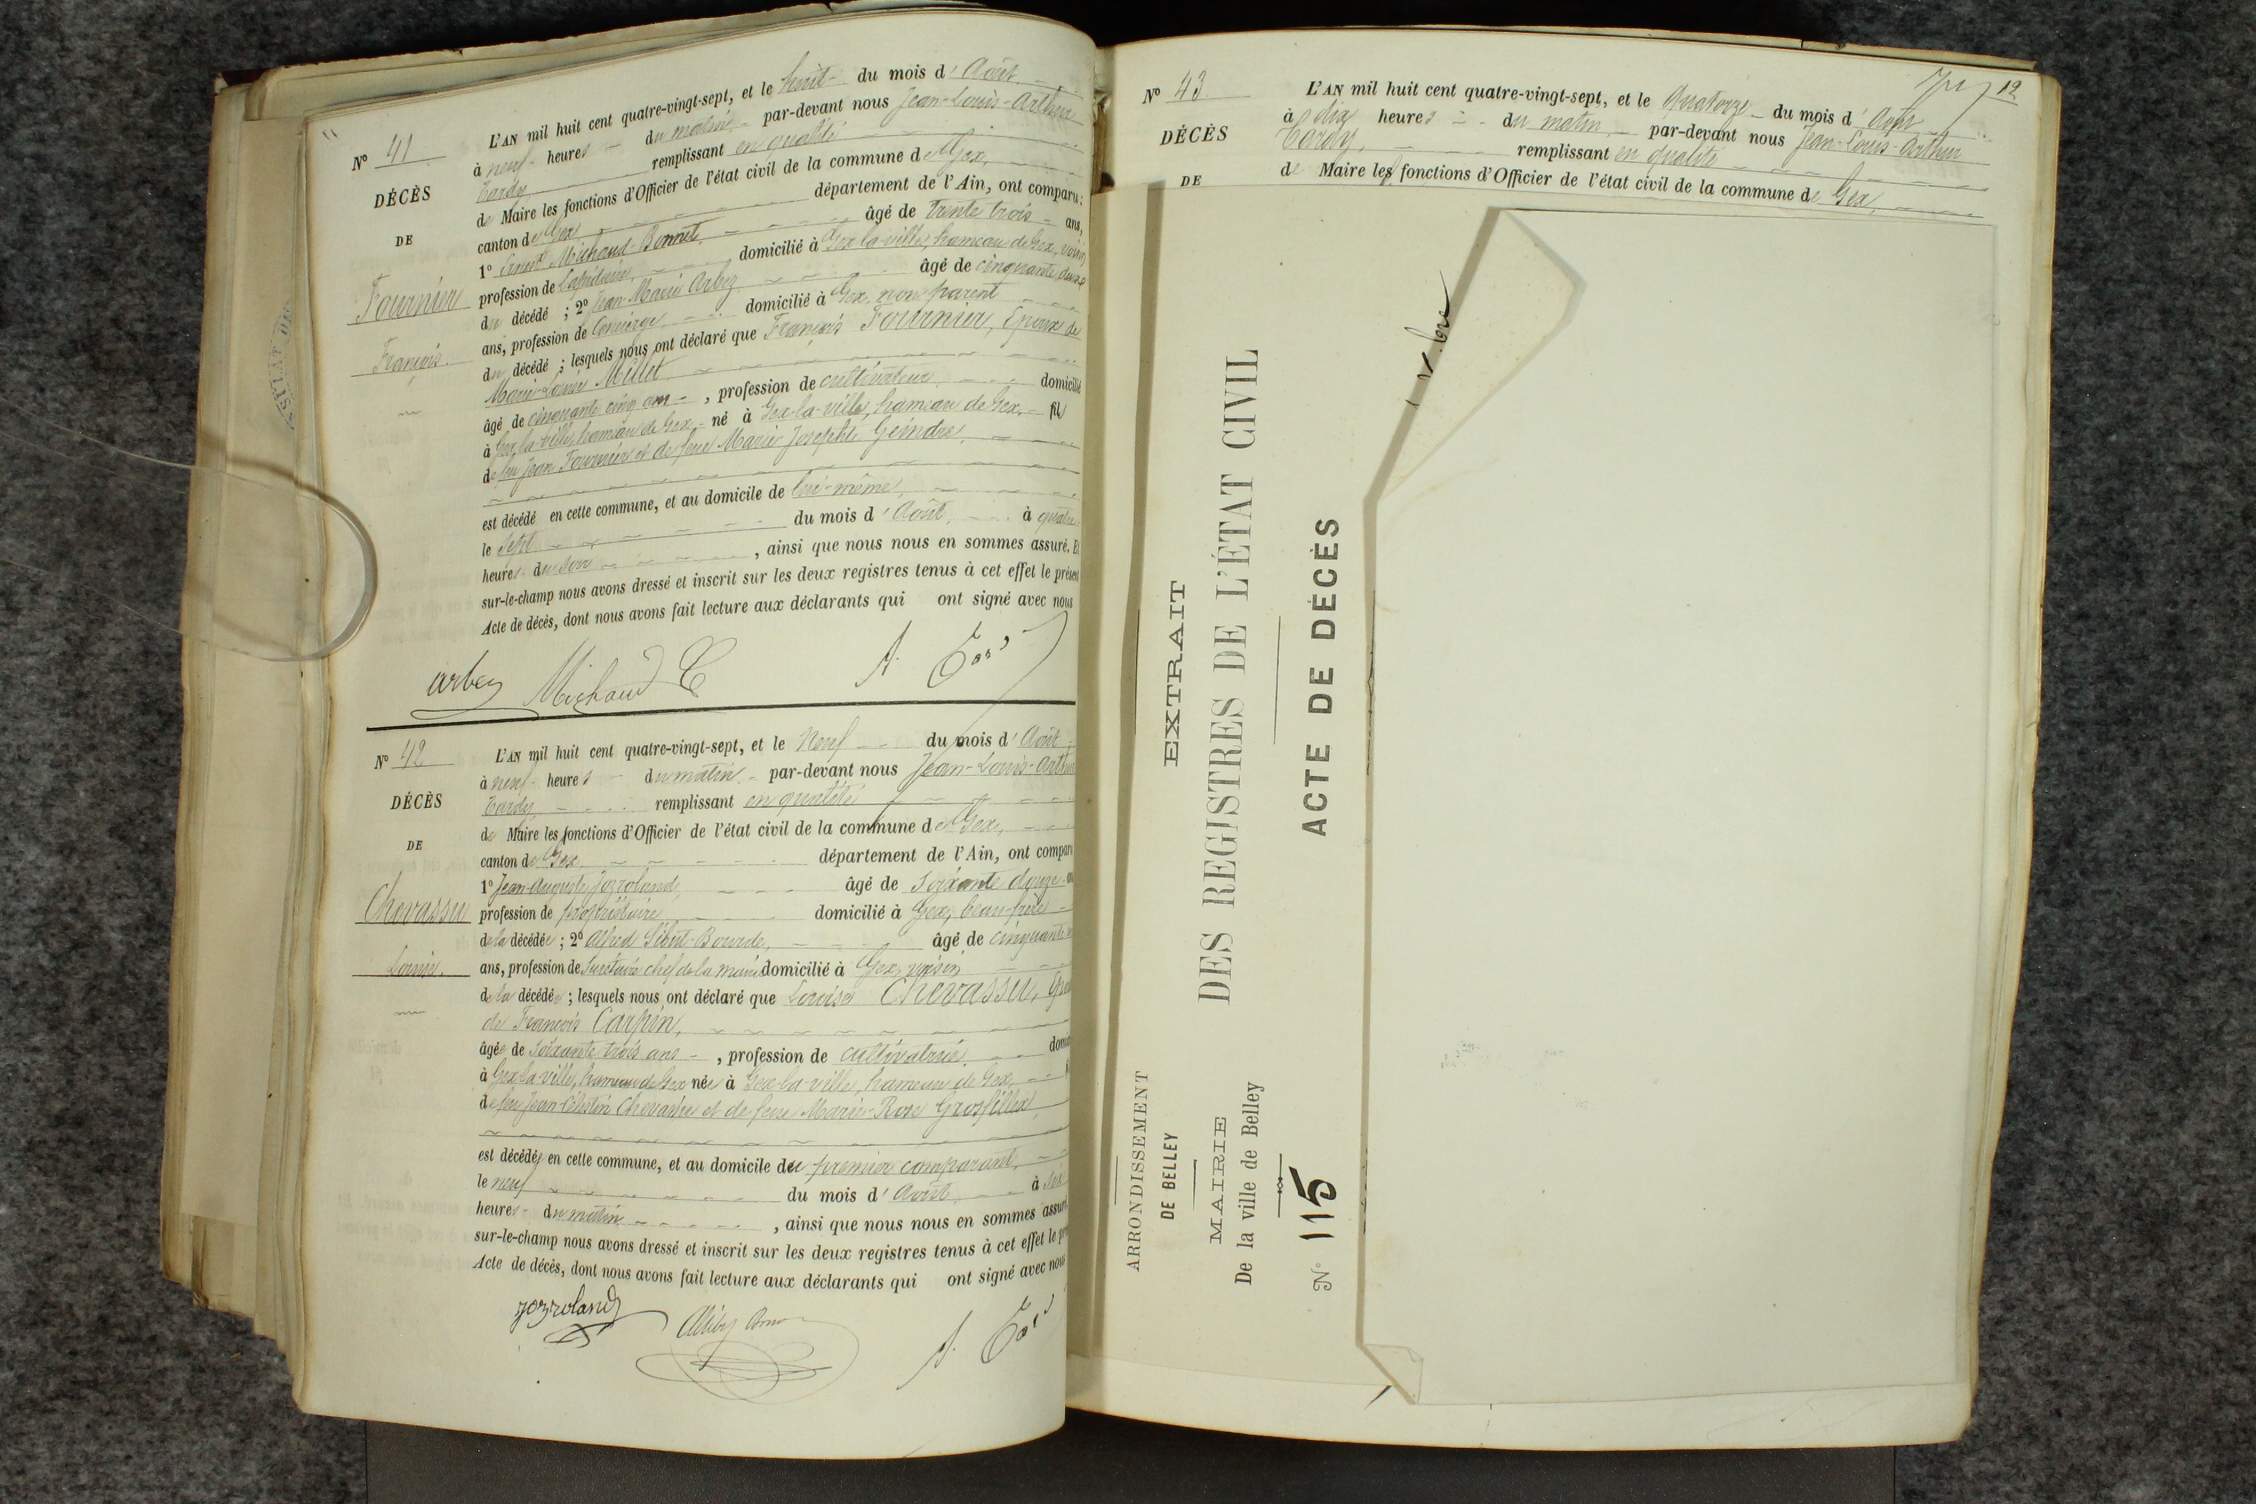 N° 41
DÉCÈS
DE
Fournier
François
L'AN mil huit cent quatre-vingt-sept, et le huit du mois d'Août
à neuf heures du matin par-devant nous Jean-Louis-Arthur
Tardy remplissant en qualité
de Maire les fonctions d'Officier de l'état civil de la commune de Gex,
canton de Gex département de l'Ain, ont comparu:
1° Ernest Michaud-Bonnet âgé de trente trois ans,
profession de Lapidaire, domicilié à Gex-la-ville, hameau de Gex, voisin
du décédé ; 2° Jean-Marie Arbez âgé de cinquante deux
ans, profession de Concierge domicilié à Gex, non parent
du décédé ; lesquels nous ont déclaré que François Fournier, Epoux de
Marie-Louise Millet
âgé de cinquante cinq ans , profession de cultivateur, domicilié
à Gex-la-ville, hameau de Gex, né à Gex-la-ville, hameau de Gex, fils
de feu Jean Fournier et de feue Marie Josephte Geindre,
est décédé en cette commune, et au domicile de lui-même,
le sept du mois d'Août, à quatre
heures du soir , ainsi que nous nous en sommes assuré. Et
sur-le-champ nous avons dressé et inscrit sur les deux registres tenus à cet effet le présent
Acte de décès, dont nous avons fait lecture aux déclarants qui ont signé avec nous
arbez Michaud A. Tardy
N° 42
DÉCÈS
DE
Chevassu
Louise.
L'AN mil huit cent quatre-vingt-sept, et le Neuf du mois d'Août
à neuf heures du matin par-devant nous Jean-Louis-Arthur
Tardy remplissant en qualité
de Maire les fonctions d'Officier de l'état civil de la commune de Gex,
canton de Gex département de l'Ain, ont comparu
1° Jean-Auguste Jozroland, âgé de soixante douze
profession de propriétaire domicilié à Gex, beau-frère
de la décédée ; 2° Alfred Bourde, âgé de cinquante
ans, profession de Secrétaire chef de la mairie domicilié à Gex, voisin
de la décédée ; lesquels nous ont déclaré que Louise Chevassu,
de François Carpin,
âgée de soixante trois ans , profession de cultivatrice
à Gex-la-ville, hameau de Gex née à Gex-la-ville, hameau de Gex,
de feu Jean-Célestin Chevassu et de feue Marie-Rose Grosfillex,
est décédée en cette commune, et au domicile du premier comparant,
le neuf du mois d'Août, à six
heures du matin , ainsi que nous nous en sommes assuré
sur-le-champ nous avons dressé et inscrit sur les deux registres tenus à cet effet le
Acte de décès, dont nous avons fait lecture aux déclarants qui ont signé avec nous
jozroland A. Tardy
12
N° 43
DÉCÈS
DE
L'AN mil huit cent quatre-vingt-sept, et le Quatorze du mois d'Août
à dix heures du matin par-devant nous Jean-Louis-Arthur
Tardy, remplissant en qualité
de Maire les fonctions d'Officier de l'état civil de la commune de Gex,
ARRONDISSEMENT
DE BELLEY
MAIRIE
De la ville de Belley
N° 115
EXTRAIT
DES REGISTRES DE L'ÉTAT CIVIL
ACTE DE DÉCÈS